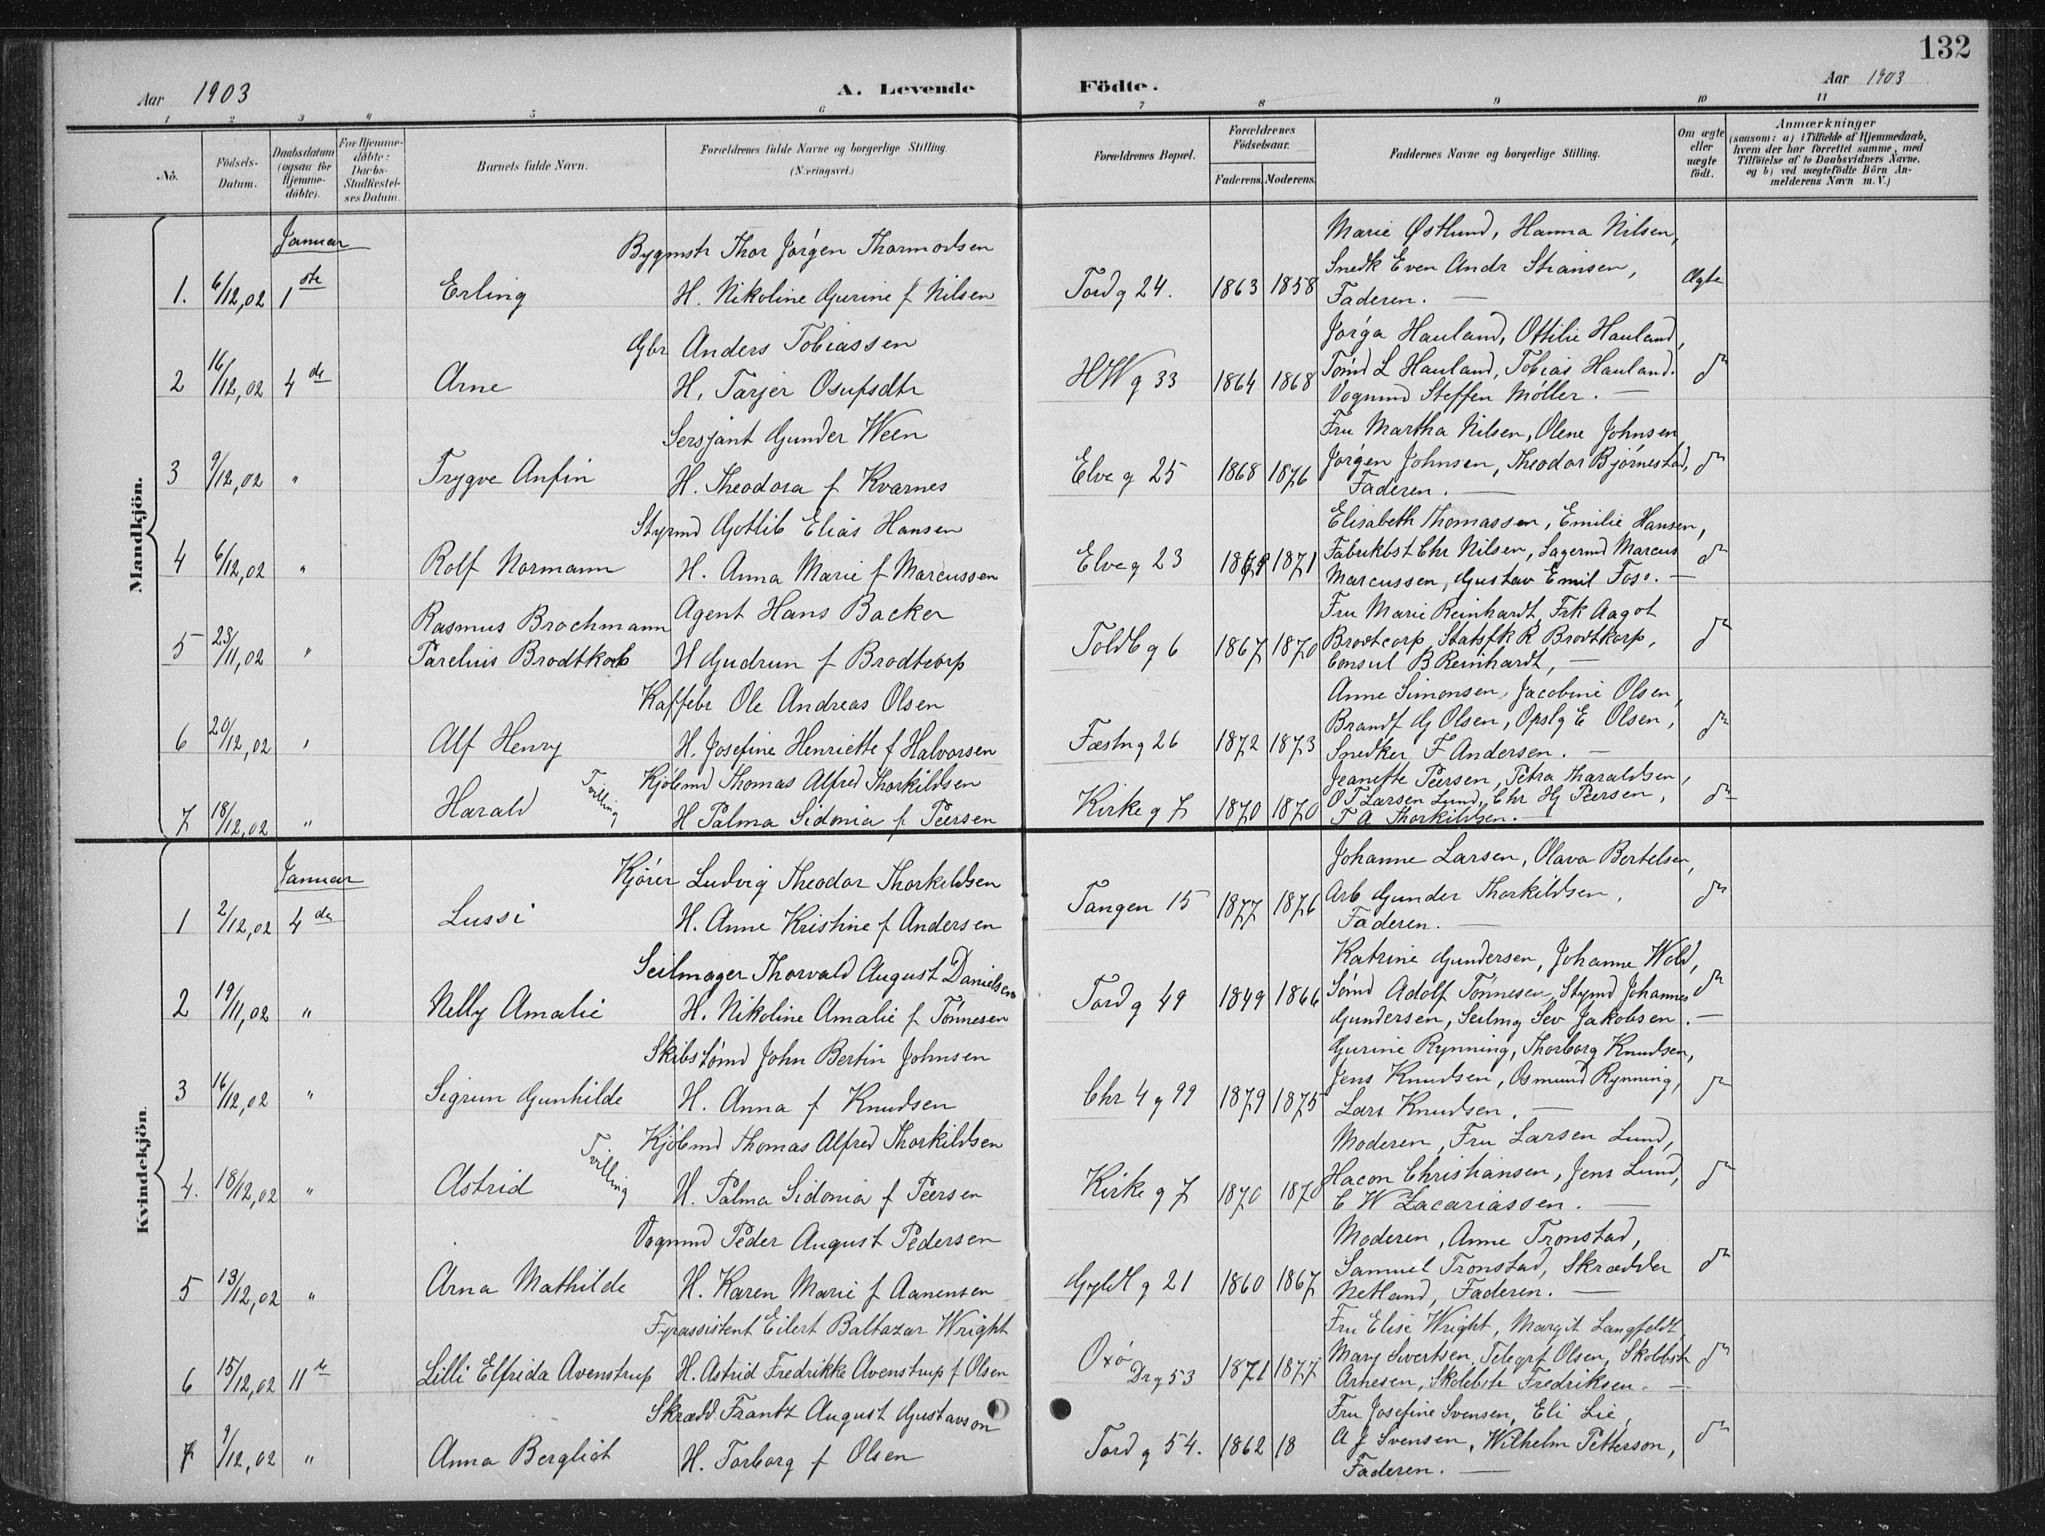 132
Aar 1903
A. Levende Födte.
Aar 1903
1 2 3 4 5 6 7 8 9 10 11
No.
Födsels-Datum.
Daabsdatum (ogsaa for Hjemme-döbte).
For Hjemme-döbte: Daabs-Stadfæstel-ses Datum.
Barnets fulde Navn.
Forældrenes fulde Navne og borgerlige Stilling. (Næringsvei.)
Forældrenes Bopæl.
Forældrenes Födselsaar.
Faderens. Moderens.
Faddernes Navne og borgerlige Stilling.
Om ægte eller uægte födt.
Anmærkninger
(saasom: a) i Tilfælde af Hjemmedaab,
hvem der har forrettet samme, med
Tilföielse af to Daabsvidners Navne.
og b) ved uægtefödte Börn An-
melderens Navn m. V.)
Mandkjön.
Januar
Bygmstr Thor Jørgen Thormodsen
Marie Østlund, Hanna Nilsen,
Snedk Even Andr Stiansen,
1. 6/12,02 1ste Erling H. Nikoline Gurine f Nilsen Tord g 24. 1863 1858 Faderen. — Ægte
Gbr Anders Tobiassen
Jorga Hauland, Ottilie Hauland,
Tømd L Hauland, Tobias Hauland.
2 16/12,02 4de Arne H. Tarjer Osufsdtr HW g 33 1864 1868 Vognmd Steffen Møller. — do
Sersjant Gunder Ween
Fru Martha Nilsen, Olene Johnsen
Jørgen Johnsen, Theodor Bjørnestad,
3 9/12,02 " Trygve Anfin H. Theodora f Kvarnes Elve g 25 1868 1876 Faderen. — do
Styrmd Gottlib Elias Hansen
Elisabeth Thomassen, Emilie Hansen,
Fabrikbst Chr Nilsen, Lagermd Marcus
4 6/12,02 " Rolf Normann H. Anna Marie f Marcussen Elve g 23 1871 Marcussen, Gustav Emil Foss. — do
Rasmus Brochmann Agent Hans Backer
Fru Marie Reinhardt, Frk Aagot
Brodtcorp, Statsfk R Brodtkorp,
5 23/11,02 " Parelius Brodtkorb H Gudrun f Brodtcorp Toldb g 6 1867 1870 Consul B Reinhardt, — do
Kaffebr Ole Andreas Olsen
Anne Simonsen, Jacobine Olsen,
Brandf G Olsen, Opslg E Olsen,
6 20/12,02 " Alf Henry H. Josefine Henriette f Halvorsen Fæstn g 26 1872 1873 Snedker F Andersen. — do
Kjøbmd Thomas Alfred Thorkildsen
Jeanette Peersen, Petra Tharaldsen,
O T Larsen Lund, Chr Hj Peersen,
7 18/12,02 " Harald Tvilling H Palma Sidonia f Peersen Kirke g 7 1870 1870 T A Thorkildsen. — do
Kvindekjön.
Januar
Kjører Ludvig Theodor Thorkildsen
Johanne Larsen, Olava Bertelsen,
Arb Gunder Thorkildsen,
1 2/12,02 4de Lussi H. Anne Kristine f Andersen Tangen 15 1877 1876 Faderen. — do
Seilmager Thorvald August Danielsen
Katrine Gundersen, Johanne Wold,
Sømd Adolf Tønnesen, Stymd Johannes
2 19/11,02 " Nelly Amalie H. Nikoline Amalie f Tønnesen Tord g 49 1849 1866 Gundersen, Seilmg Sev Jakobsen. — do
Skibstømd John Bertin Johnsen
Gurine Rynning, Thorborg Knudsen,
Jens Knudsen, Osmund Rynning,
3 16/12,02 " Sigrun Gunhilde H. Anna f Knudsen Chr 4 g 99 1879 1875 Lars Knudsen. — do
Kjøbmd Thomas Alfred Thorkildsen
Moderen, Fru Larsen Lund,
Hacon Christiansen, Jens Lund,
4. 18/12,02 " Astrid Tvilling H. Palma Sidonia f Peersen Kirke g 7 1870 1870 C W Zacariassen. — do
Vognmd Peder August Pedersen
Moderen, Anne Tronstad,
Samuel Tronstad, Skrædder
5 13/12,02 " Arna Mathilde H. Karen Marie f Aanensen Gyldl g 21 1860 1867 Netland, Faderen. — do
Fyrassistent Eilert Baltazar Wright
Fru Elise Wright, Margit Langfeldt,
Mary Sivertsen, Telegrf Olsen, Skolbst
6 15/12,02 11te Lilli Elfrida Avenstrup H. Astrid Fredrikke Avenstrup f Olsen Oxø Dr g 53 1871 1877 Arnesen, Skolebst Fredriksen. — do
Skrædd. Frantz August Gustavson
Fru Josefine Svensen, Eli Lie,
A J Svensen, Wilhelm Petterson,
7 9/12,02 " Anna Bergliot H. Torborg f Olsen Tord g 54. 1862 18 Faderen. — do